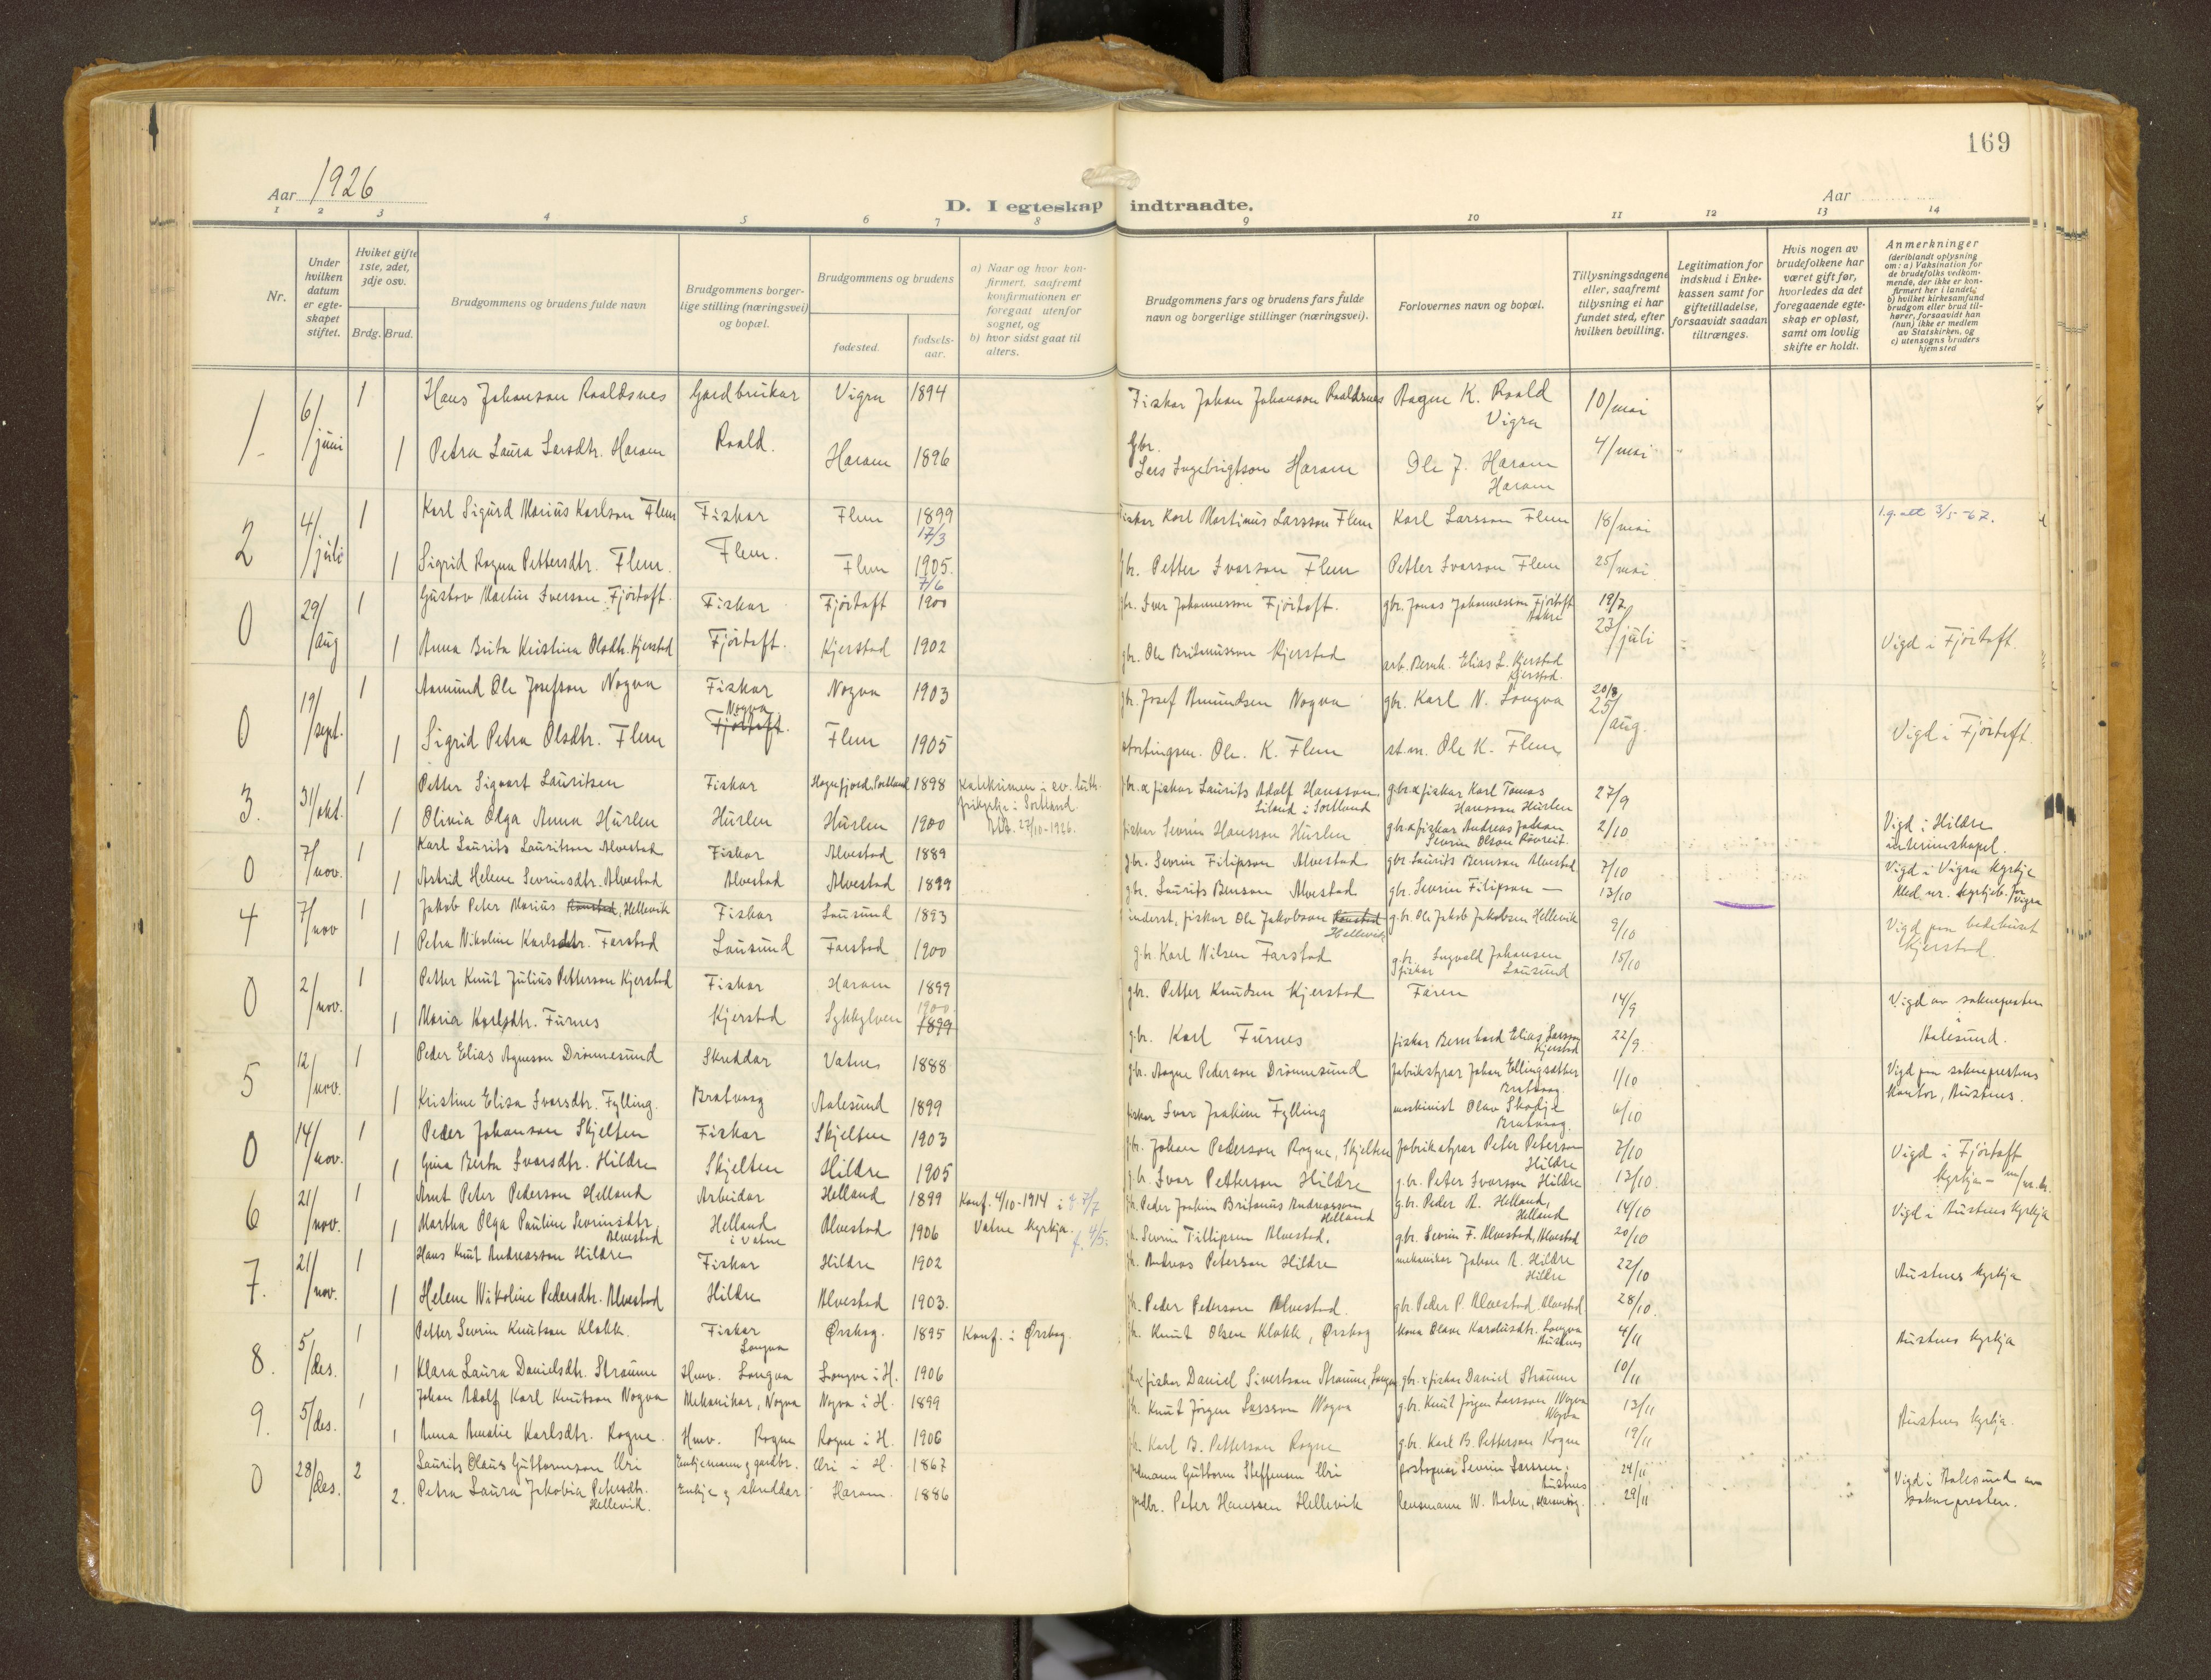 169
Aar 1926
Aar
D. I egteskap indtraadte.
1 2 3 4 5 6 7 8 9 10 11 12 13 14
Nr.
Under hvilken datum er egte-skapet stiftet.
Hviket gifte 1ste, 2det, 3dje osv.
Brdg. Brud.
Brudgommens og brudens fulde navn
Brudgommens borger-lige stilling (næringsvei) og bopæl.
Brudgommens og brudens
fødested.
fødsels-aar.
a) Naar og hvor kon-firmert, saafremt konfirmationen er foregaat utenfor sognet, og
b) hvor sidst gaat til alters.
Brudgommens fars og brudens fars fulde navn og borgerlige stillinger (næringsvei).
Forlovernes navn og bopæl.
Tillysningsdagene eller, saafremt tillysning ei har fundet sted, efter hvilken bevilling.
Legitimation for indskud i Enke-kassen samt for giftetilladelse, forsaavidt saadan tiltrænges.
Hvis nogen av brudefolkene har været gift før, hvorledes da det foregaaende egte-skap er opløst, samt om lovlig skifte er holdt.
Anmerkninger
(deriblandt oplysning om: a) Vaksination for de brudefolks vedkom-mende, der ikke er kon-firmert her i landet, b) hvilket kirkesamfund brudgom eller brud til-hører, forsaavidt han (hun) ikke er medlem av Statskirken, og c) utensogns bruders hjemsted
1. 6/juni 1 Hans Johanson Roaldsnes Gardbrukar Vigra 1894 Fiskar Johan Johanson Roaldsnes Aagne K. Roald Vigra 10/mai
1 Petra Laura Larsdtr. Haram Roald. Haram 1896 Gbr. Lars Ingebrigtson Haram Ole J. Haram Haram 4/mai
2 4/juli 1 Karl Sigurd Marius Karlson Flem Fiskar Flem 1899 17/3 Fiskar Karl Martinus Larsson Flem Karl Larsson Flem 18/mai 3/5-67.
1 Sigrid Ragna Pettersdtr. Flem. Flem. Flem 1905. 7/6 gbr. Petter Ivarson Flem Petter Ivarson Flem 25/mai
0 29/aug 1 Gustav Martin Iverson Fjørtoft. Fiskar Fjørtoft 1900 gbr. Iver Johannesson Fjørtoft. gbr. Jonas Johannesson Fjørtoft 19/7
1 Anna Brita Kristina Olsdtr. Kjerstad Fjørtoft. Kjerstad 1902 gbr. Ole Britanusson Kjerstad arb. Bernh. Elias L. Kjerstad Kjerstad. 23/juli Vigd i Fjørtoft.
0 19/sept. 1 Aamund Ole Josefson Nogva Fiskar Nogva 1903 gbr. Josef Amundsen Nogva gbr. Karl N. Longva 20/8
1 Sigrid Petra Olsdtr. Flem Nogva Fjørtoft. Flem 1905 stortingsm. Ole K. Flem st.m. Ole K. Flem 25/aug. Vigd i Fjørtoft.
3. 31/okt. 1 Petter Sigvart Lauritsen Fiskar Hognfjord, Sortland 1898 Katekumen i ev. luth. frikyrkje i Sortland. 27/10-1926. gbr. & fiskar Laurits Adolf Hansson, Liland i Sortland gbr. & fiskar Karl Tomas Hansson Hurlen 27/9
1 Olivia Olga Anna Hurlen Hurlen Hurlen 1900 fiskar Sevrin Hansson Hurlen gbr. & fiskar Andreas Johan Sevrin Olson Røvreit. 2/10 Vigd i Hildre interimskapel.
0 7/nov. 1 Karl Laurits Lauritson Alvestad Fiskar Alvestad 1889 gbr. Sevrin Filipson Alvestad gbr. Laurits Bernson Alvestad 7/10 Vigd i Vigra kyrkje
1 Astrid Helene Sevrinsdtr. Alvestad Alvestad Alvestad 1899 gbr. Laurits Benson Alvestad gbr. Sevrin Filipson — 13/10 Med nr. kyrkjeb. for Vigra
4 7/nov 1 Jakob Peter Marius Hellevik Fiskar Lausund 1893 inderst, fiskar Ole Jakobson Hellevik g.br. Ole Jakob Jakobsen Hellevik 9/10 Vigd paa bedehuset Kjerstad.
1 Petra Nikoline Karlsdtr. Farstad Lausund Farstad 1900 g.br. Karl Nilsen Farstad g.br. fiskar Ingvald Johansen Lausund 15/10
0 2/nov. 1 Petter Knut Julius Petterson Kjerstad Fiskar Haram 1899 gbr. Petter Knudsen Kjerstad Faren 14/9 Vigd av soknepresten i Aalesund.
1 Maria Karlsdtr. Furnes Kjerstad Sykkylven 1900 1899 g.br. Karl Furnes fiskar Bernhard Elias Larsson Kjerstad 22/9.
5 12/nov. 1 Peder Elias Agneson Drønnesund Skreddar Vatne 1888 gbr. Aagne Pederson Drønnesund fabrikstyrar Johan Ellingsæther Bratvaag 1/10 Vigd paa sokneprestens kontor, Austnes.
1 Kristine Elisa Ivarsdtr. Fylling. Bratvaag Aalesund 1899 fiskar Ivar Joakim Fylling maskinist Olav Skodje Bratvaag. 6/10
0 14/nov. 1 Peder Johanson Skjelten Fiskar Skjelten 1903 gbr. Johan Pederson Rogne, Skjelten fabrikstyrar Peter Peterson Hildre 7/10 Vigd i Fjørtoft kyrkja
1 Gina Berta Ivarsdtr. Hildre Skjelten Hildre 1905 g.br. Ivar Petterson Hildre g.br. Peter Ivarson Hildre 13/10.
6 21/nov. 1 Arnt Peter Pederson Helland Arbeidar Helland 1899 Konf. 4/10-1914 i Vatne kyrkja f. 7/7 gbr. Peder Joakim Britanus Andreasson Helland g.br. Peder A. Helland, Helland 14/10 Vigd i Austnes kyrkja
1 Martha Olga Pauline Sevrinsdtr. Alvestad Helland i Vatne Alvestad 1906 f. 4/5. gbr. Sevrin Fillipsen Alvestad. gbr. Sevrin F. Alvestad, Alvestad 20/10
7. 21/nov. 1 Hans Knut Andreasson Hildre Fiskar Hildre 1902 gbr. Andreas Peterson Hildre mekanikar Johan A. Hildre Hildre 22/10 Austnes kyrkja
1 Helene Nikoline Pedersdtr. Alvestad Hildre Alvestad 1903. gbr. Peder Pederson Alvestad. gbr. Peder P. Alvestad. Alvestad 28/10.
8. 5/des. 1 Petter Sevrin Knutson Klokk. Fiskar Longva Ørskog. 1895 Konf. i Ørskog. gbr. Knut Olsen Klokk, Ørskog Kona Olave Karolusdtr. Longva Austnes 4/11 Austnes kyrkja
1 Klara Laura Danielsdtr. Straume Hmv. Longva Longva i H. 1906 gbr. & fiskar Daniel Sivertson Straume, Longva gbr. & fiskar Daniel Straume 10/11
9. 5/des. 1 Johan Adolf Karl Knutson Nogva Mekanikar, Nogva Nogva i H. 1899 gbr. Knut Jørgen Larsson Nogva g.br. Knut Jørgen Larsson Nogva Nogva 13/11 Austnes kyrkja.
1 Anna Amalie Karlsdtr. Rogne. Hmv. Rogne Rogne i H. 1906 gbr. Karl B. Petterson Rogne g.br. Karl B. Petterson Rogne 19/11
0 28/des. 2 Laurits Olaus Guttormson Uri Enkjemann g gardbr. Uri i H. 1867 Guttorm Steffensen Uri postopnar Sevrin Larssen. Austnes 24/11 Vigd i Aalesund av soknepresten.
2. Petra Laura Jakobia Petersdtr. Hellevik. Enkje g skreddar Haram 1886 gardbr. Peter Hanssen Hellevik lensmann W. Aakre, 29/11